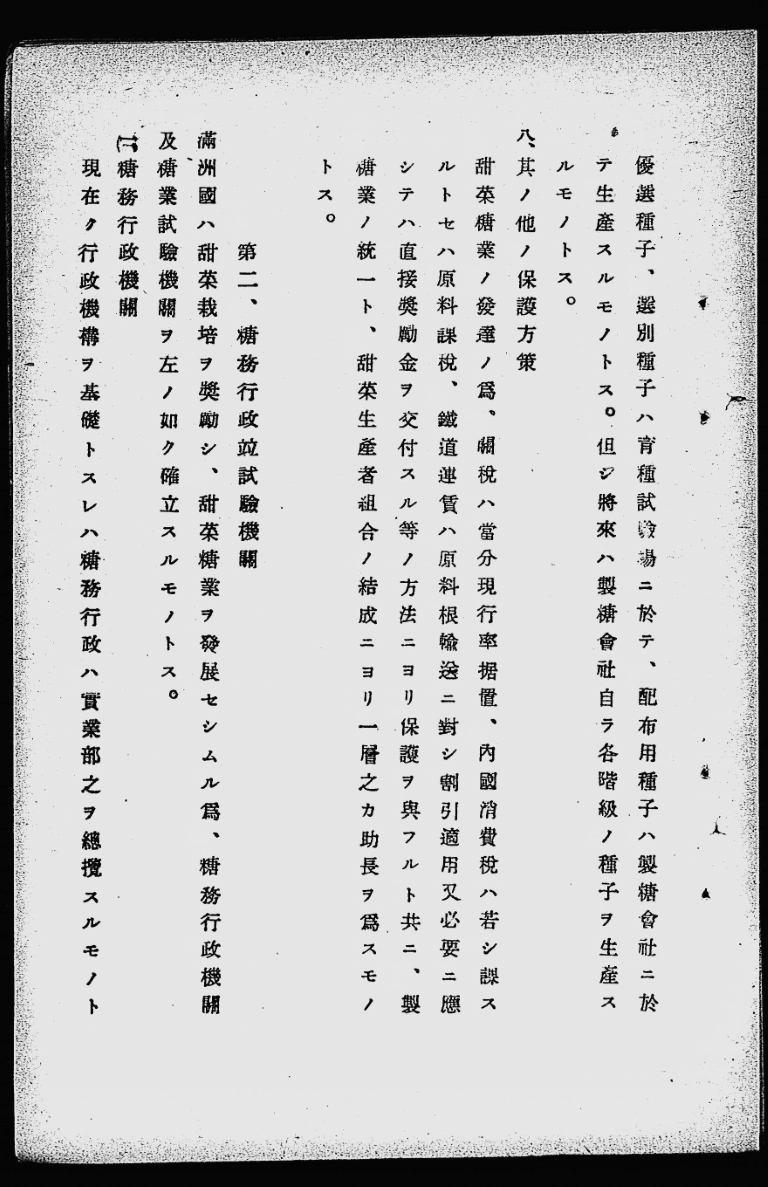 優選種子、選別種子ハ育種試驗場ニ於テ、配布用種子ハ製糖會社ニ於
テ生產スルモノトス。但シ將來ハ製糖會社自ラ各階級ノ種子ヲ生產ス
ルモノトス。
八、其ノ他ノ保護方策
甜菜糖業ノ發達ノ爲、關稅ハ當分現行率据置、內國消費稅ハ若シ課ス
ルトセハ原料課稅、鐵道運賃ハ原料根輸送ニ對シ割引適用又必要ニ應
シテハ直接奬勵金ヲ交付スル等ノ方法ニヨリ保護ヲ與フルト共ニ、製
糖業ノ統一ト、甜菜生產者組合ノ結成ニヨリ一層之カ助長ヲ爲スモノ
トス。
第二、糖務行政竝試驗機關
滿洲國ハ甜菜栽培ヲ奬勵シ、甜菜糖業ヲ發展セシムル爲、糖務行政機關
及糖業試驗機關ヲ左ノ如ク確立スルモノトス。
糖務行政機關
現在ク行政機構ヲ基礎トスレハ糖務行政ハ實業部之ヲ總攬スルモノト